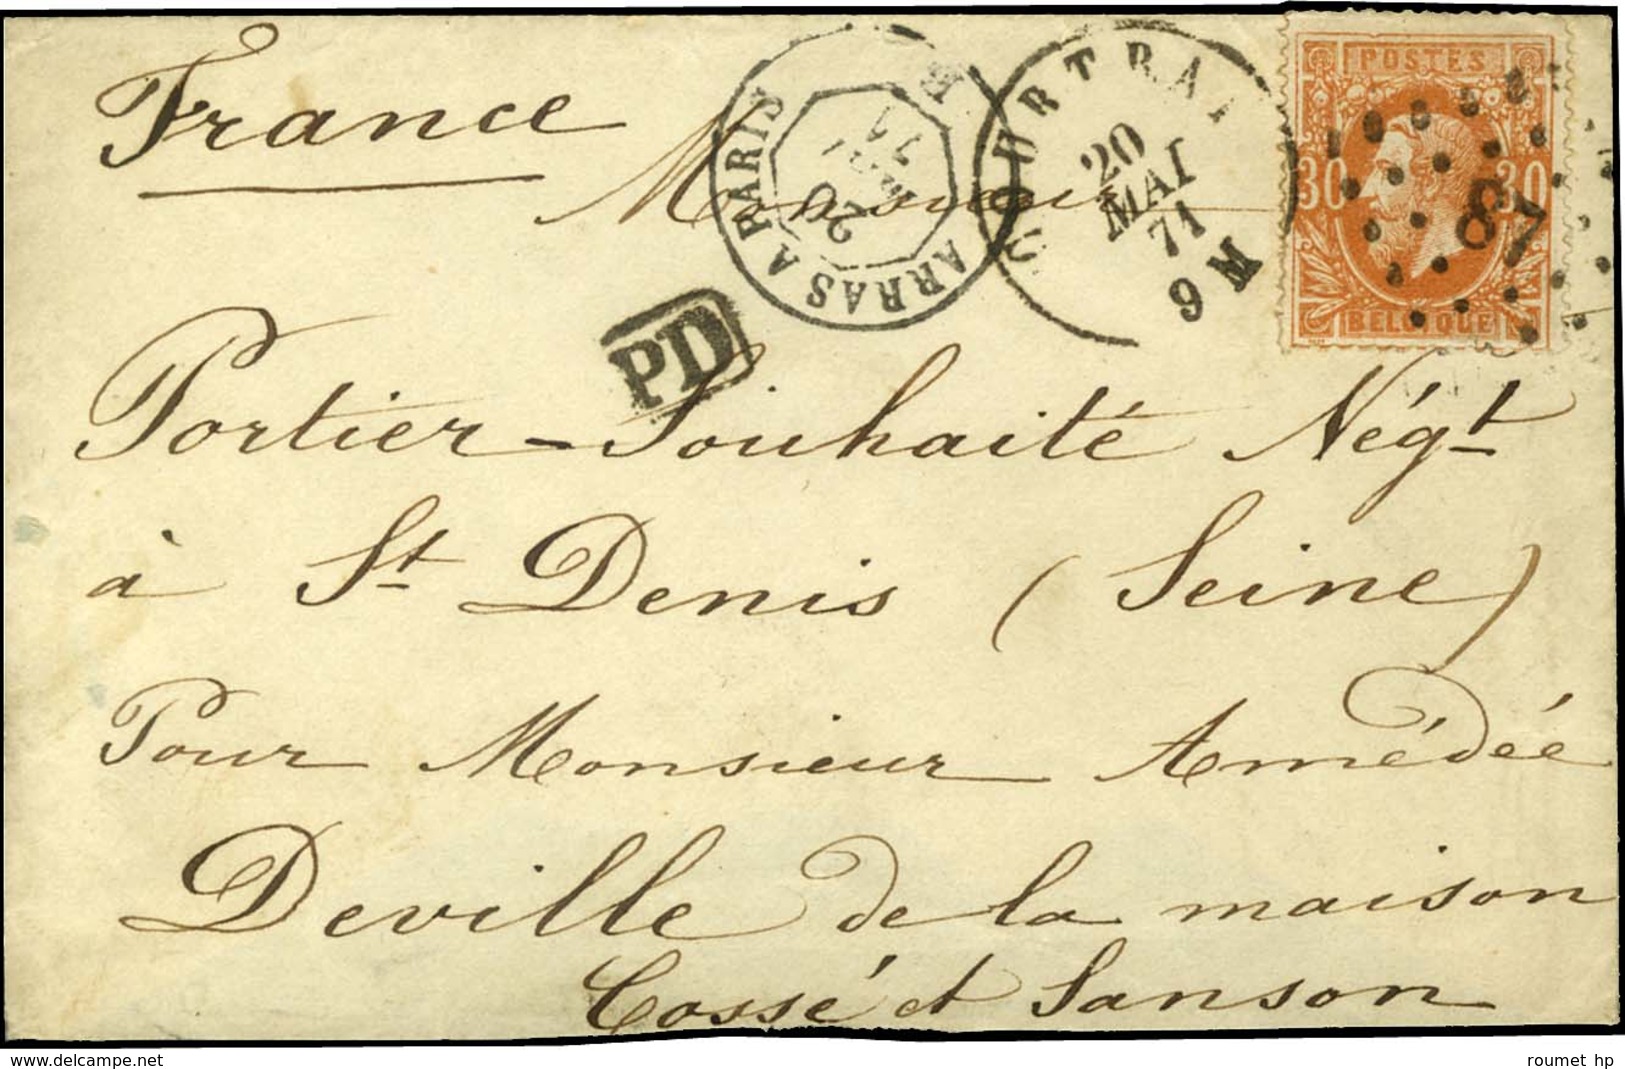 France
ARRAS A PARIS
20
MAI
71
COURTRAI
20
MAI
71
9 M
POSTES
30 30
87
BELGIQUE
Monsieur
PD
Portier-Souhaité Négt
à St Denis (Seine)
Pour Monsieur Amédée
Deville de la maison
Cossé et Sanson
delcampe.net
roumet hp